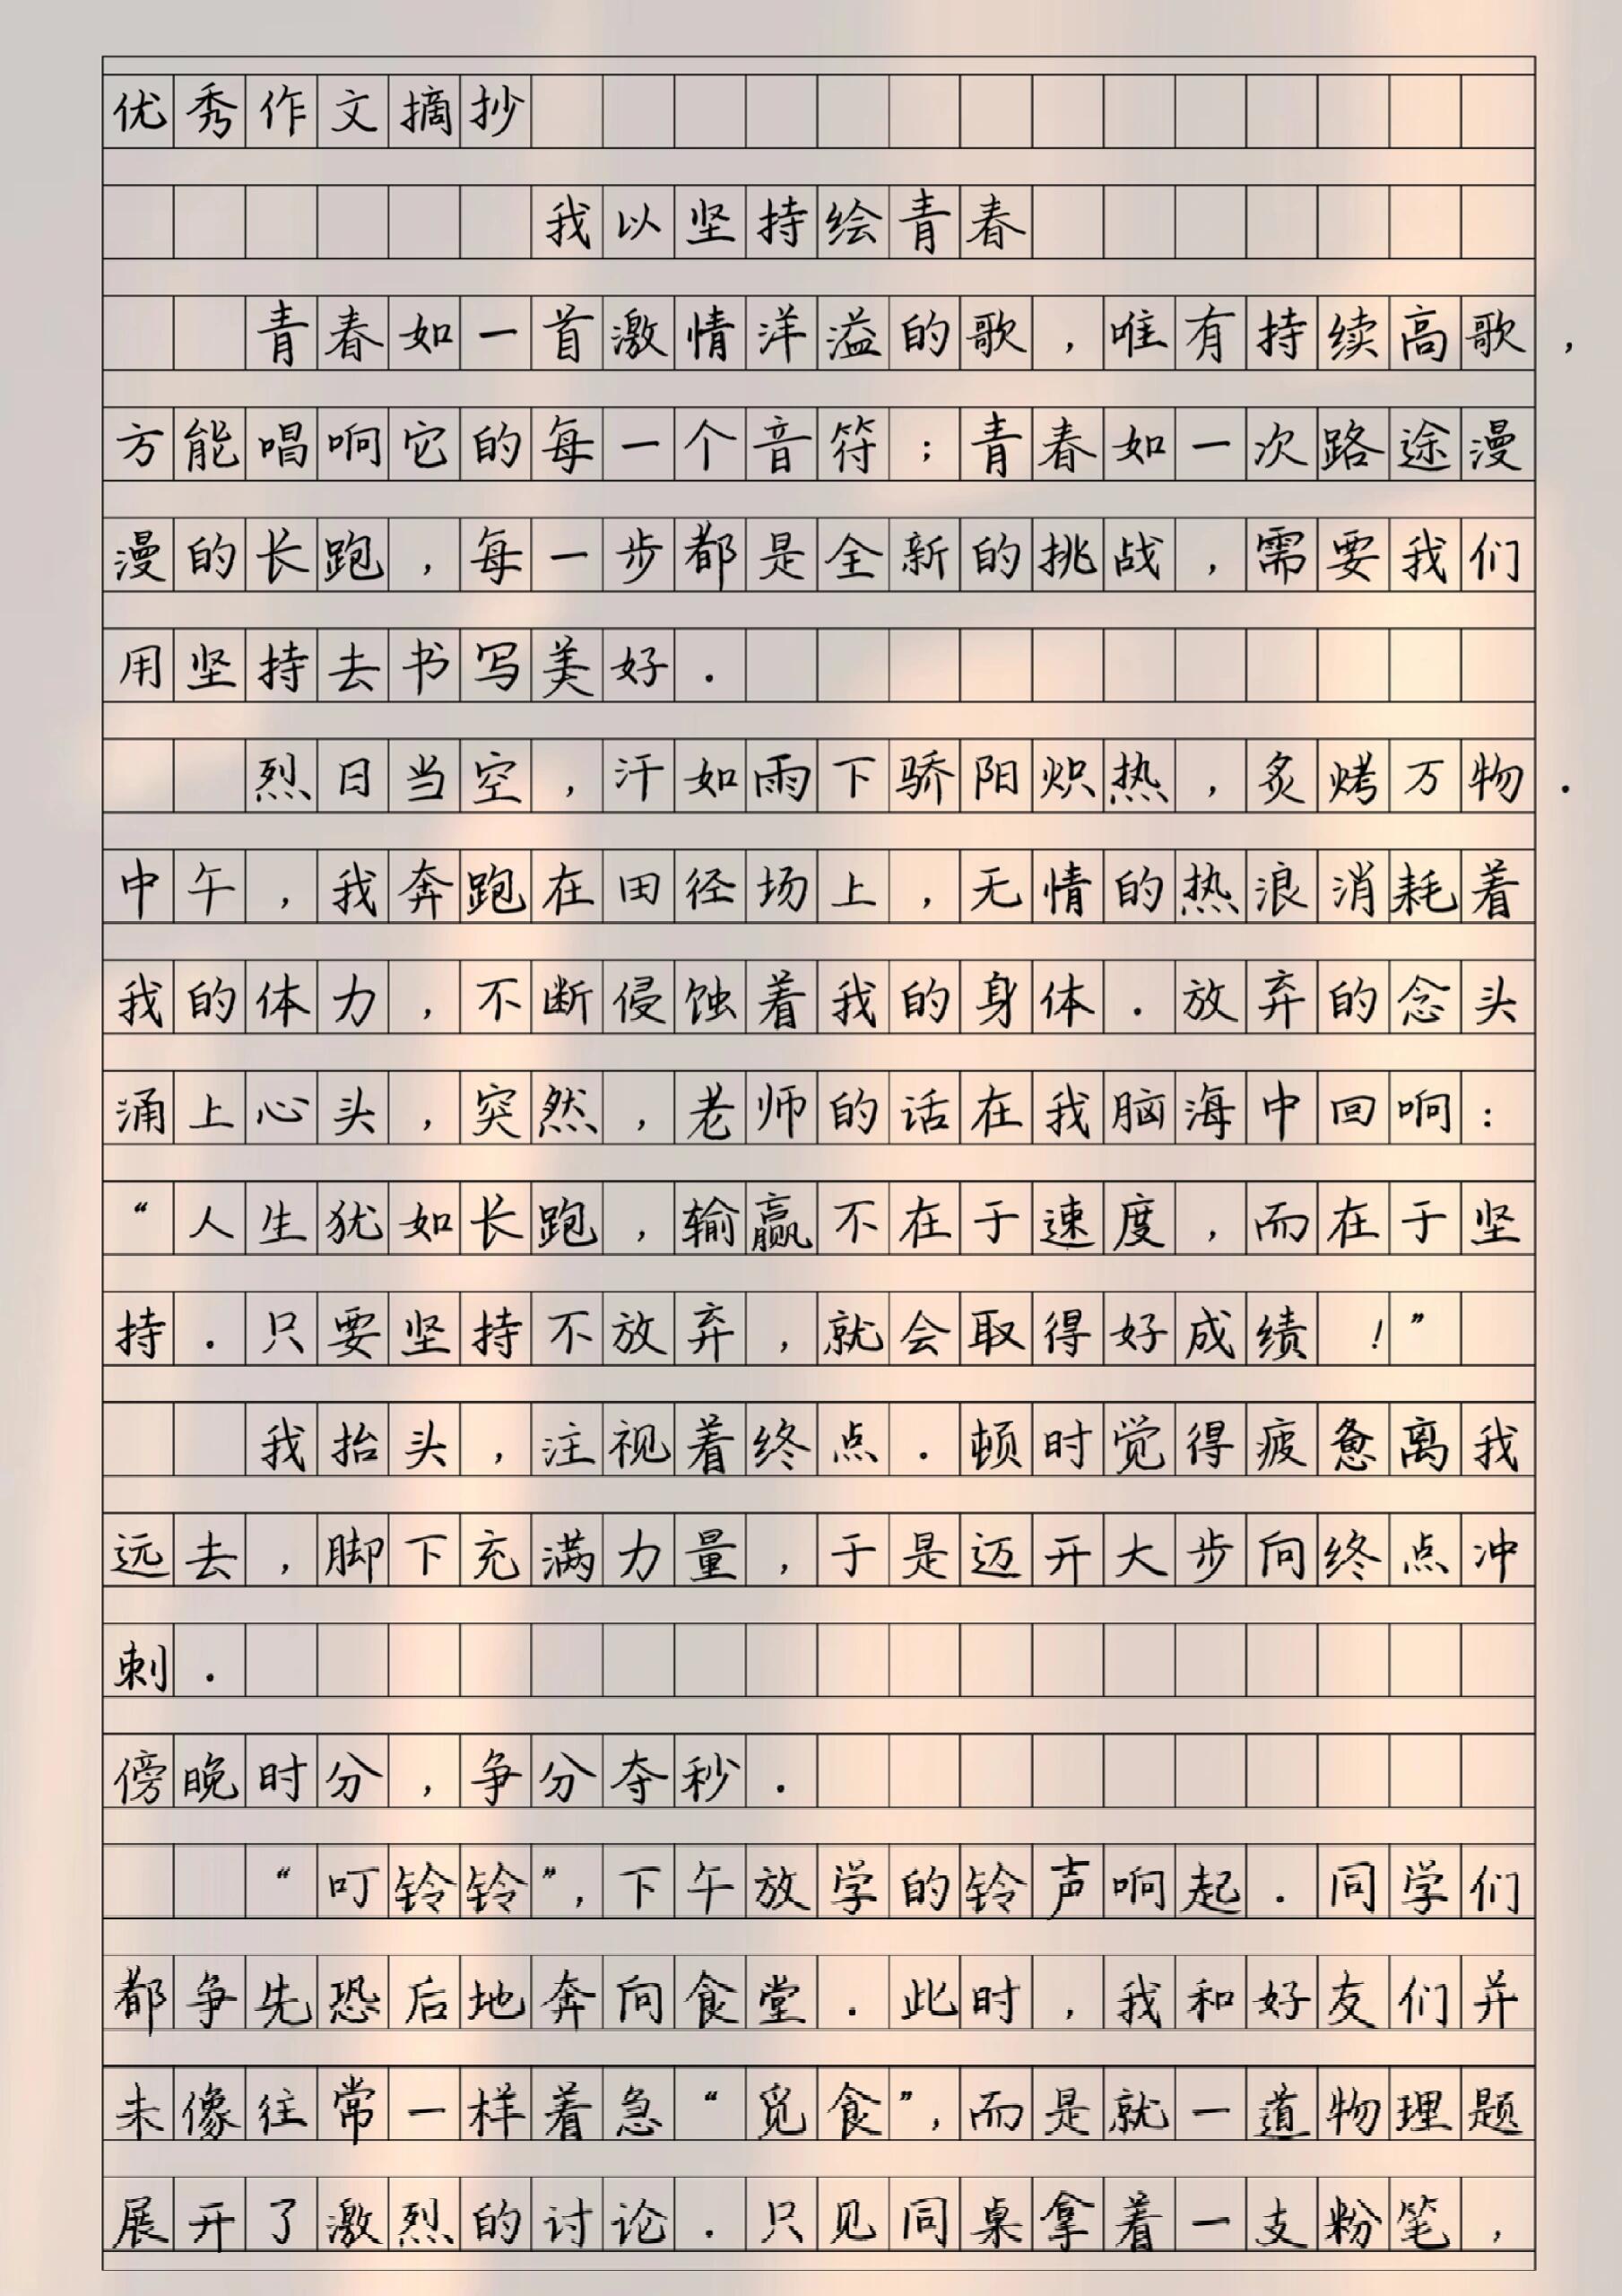 优秀作文摘抄
我以坚持绘青春
青春如一首激情洋溢的歌，唯有持续高歌，
方能唱响它的每一个音符；青春如一次路途漫
漫的长跑，每一步都是全新的挑战，需要我们
用坚持去书写美好．
烈日当空，汗如雨下骄阳炽热，炙烤万物．
中午，我奔跑在田径场上，无情的热浪消耗着
我的体力，不断侵蚀着我的身体．放弃的念头
涌上心头，突然，老师的话在我脑海中回响：
“人生犹如长跑，输赢不在于速度，而在于坚
持．只要坚持不放弃，就会取得好成绩！”
我抬头，注视着终点．顿时觉得疲惫离我
远去，脚下充满力量，于是迈开大步向终点冲
刺．
傍晚时分，争分夺秒．
“叮铃铃”，下午放学的铃声响起．同学们
都争先恐后地奔向食堂．此时，我和好友们并
未像往常一样着急“觅食”，而是就一道物理题
展开了激烈的讨论．只见同桌拿着一支粉笔，